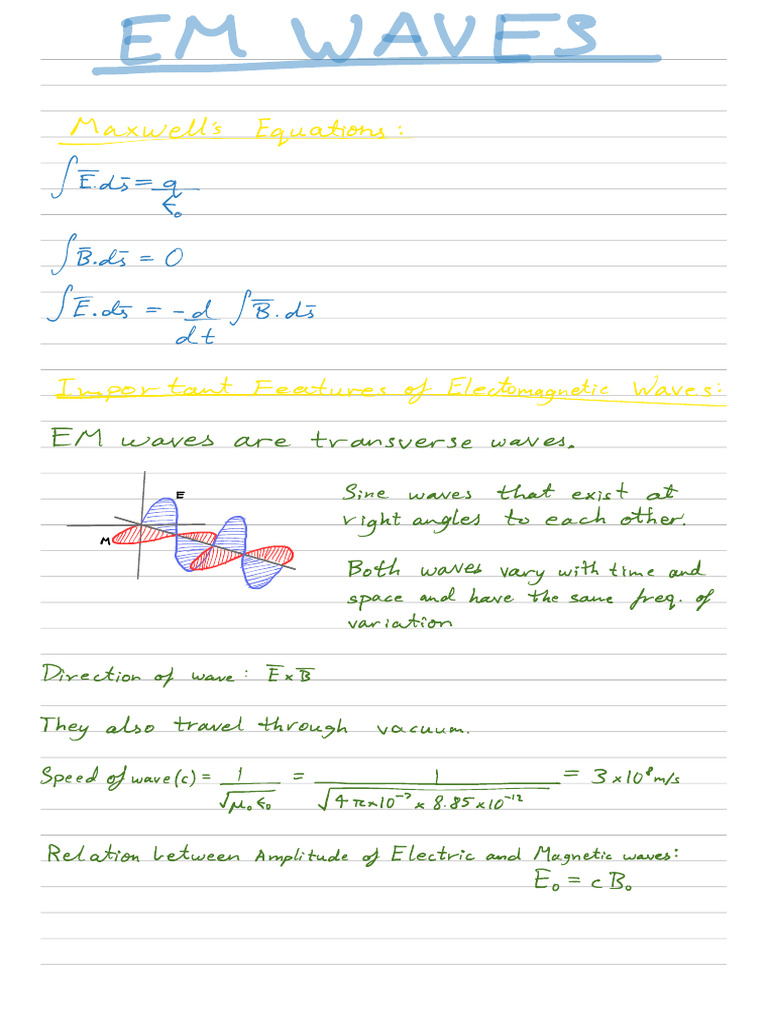 EM WAVES
Maxwell's Equations:
∫Ē.ds̄ = q/ϵ₀
∫B̄.ds̄ = 0
∫Ē.ds̄ = -d/dt ∫B̄.ds̄
Important Features of Electomagnetic Waves:
EM waves are transverse waves.
E
M
Sine waves that exist at
right angles to each other.
Both waves vary with time and
space and have the same freq. of
variation
Direction of wave: Ē×B̄
They also travel through vacuum.
Speed of wave(c) = 1/√μ₀ϵ₀ = 1/√4π×10⁻⁷×8.85×10⁻¹² = 3×10⁸m/s
Relation between Amplitude of Electric and Magnetic waves:
E₀ = cB₀